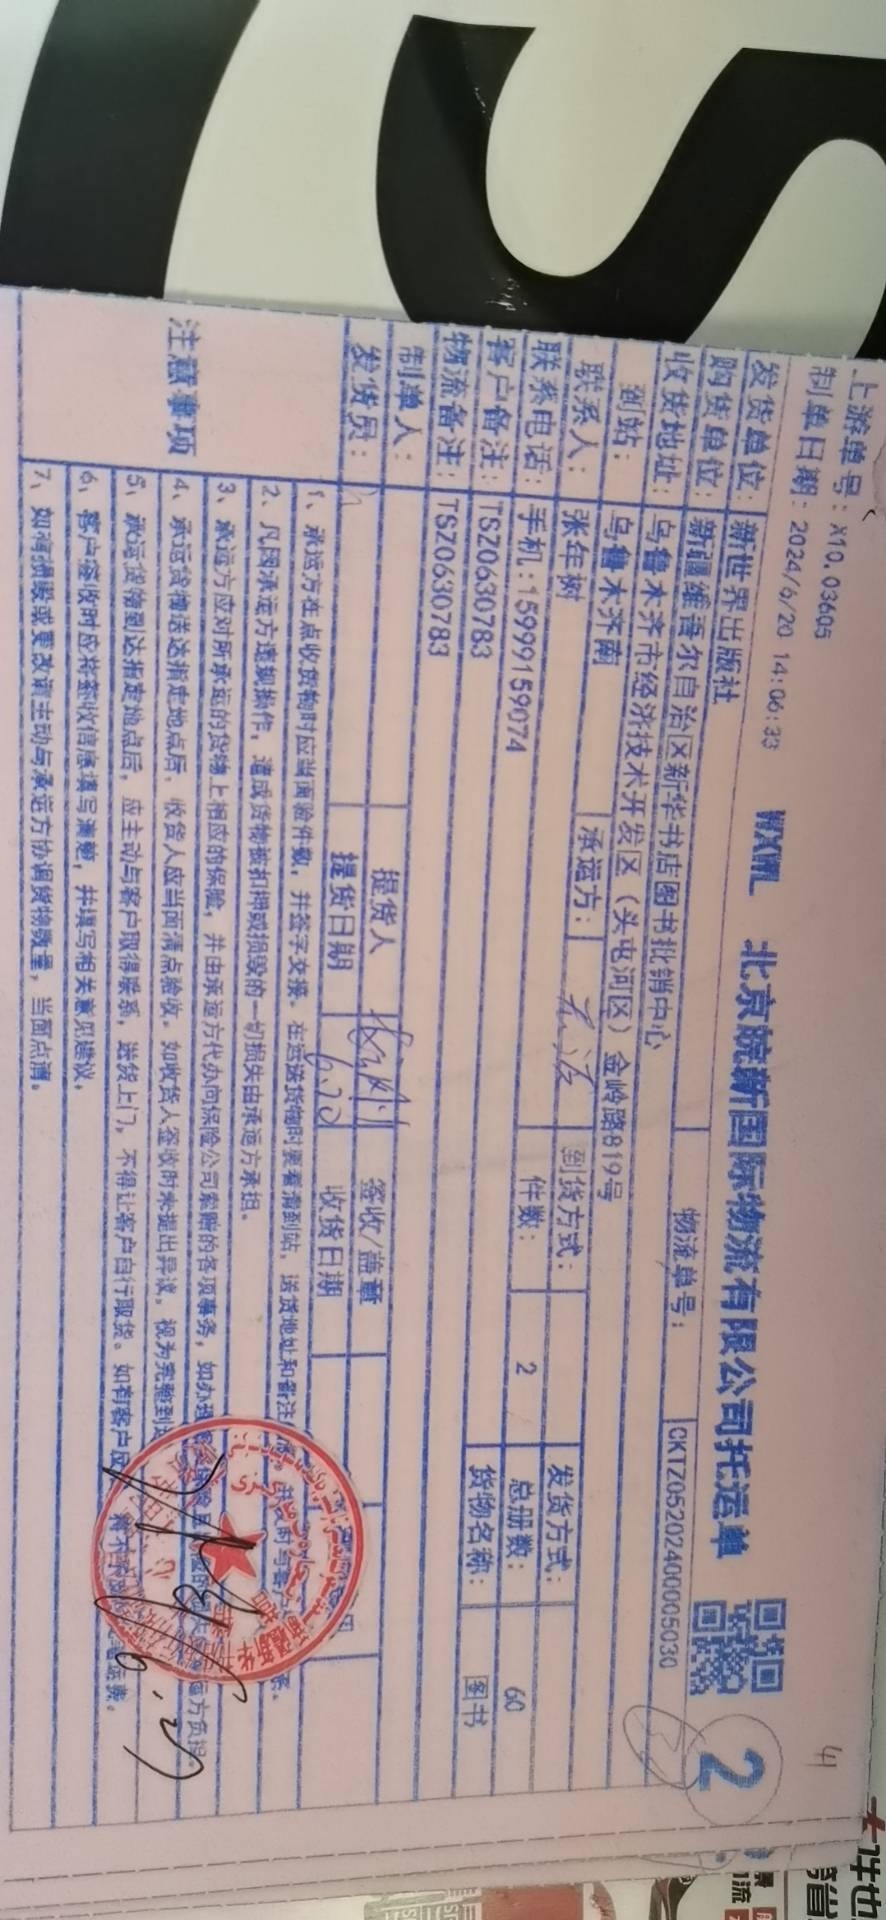 上游单号：X10.03605
制单日期：2024/6/20 14:06:33
WXWL 北京皖新国际物流有限公司托运单
2
发货单位：新世界出版社 物流单号：CKTZ05202400005030
购货单位：新疆维吾尔自治区新华书店图书批销中心
收货地址：乌鲁木齐市经济技术开发区（头屯河区）金岭路819号
到站：乌鲁木齐南 承运方： 到货方式： 发货方式：
联系人：张年树 件数：2 总册数：60
联系电话：手机:15999159074 货物名称：图书
客户备注：TSZ0630783
物流备注：TSZ0630783
制单人： 提货人 签收/盖章
发货员： 提货日期 6.20 收货日期
注意事项
1、承运方在点收货物时应当面验件数，并签字交接。在运送货物时要看清到站，送货地址和备注
2、凡因承运方违规操作，造成货物被扣押或损毁的一切损失由承运方承担。
3、承运方应对所承运的货物上相应的保险，并由承运方代办向保险公司索赔的各项事务，如办理
4、承运货物送达指定地点后，收货人应当面清点验收。如收货人签收时未提出异议，视为完整到
5、承运货物到达指定地点后，应主动与客户取得联系，送货上门，不得让客户自行取货。如有客户反
6、客户签收时应将签收信息填写清楚，并填写相关意见建议。
7、如有损毁或要改请主动与承运方协调货物数量，当面点清。